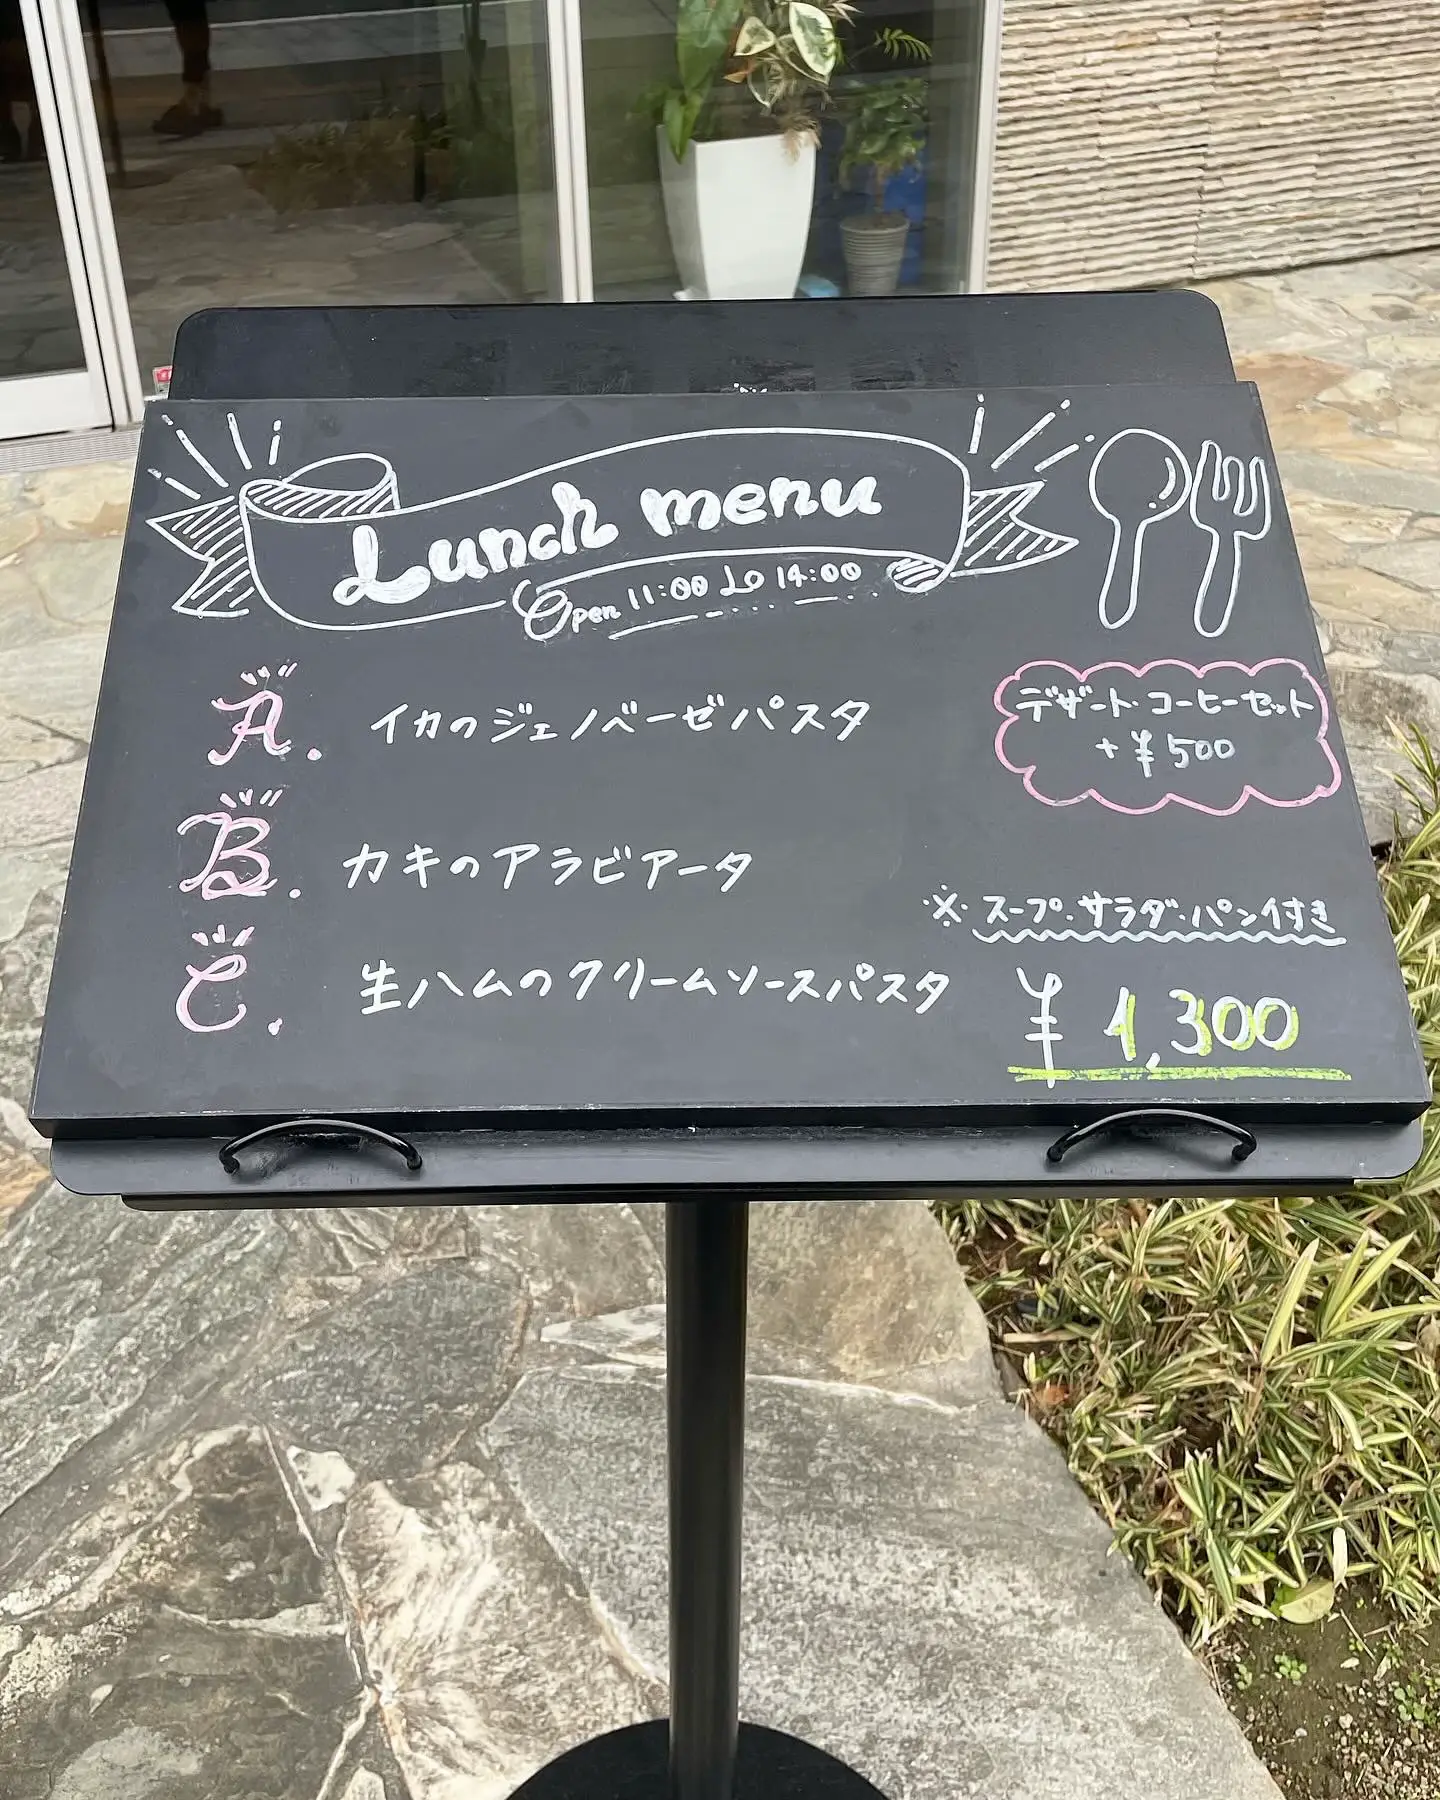 Lunch menu
Open 11:00 Lo 14:00
A. イカのジェノベーゼパスタ
デザート・コーヒーセット
+¥500
B. カキのアラビアータ
※スープ・サラダ・パン付き
C. 生ハムのクリームソースパスタ
¥1,300